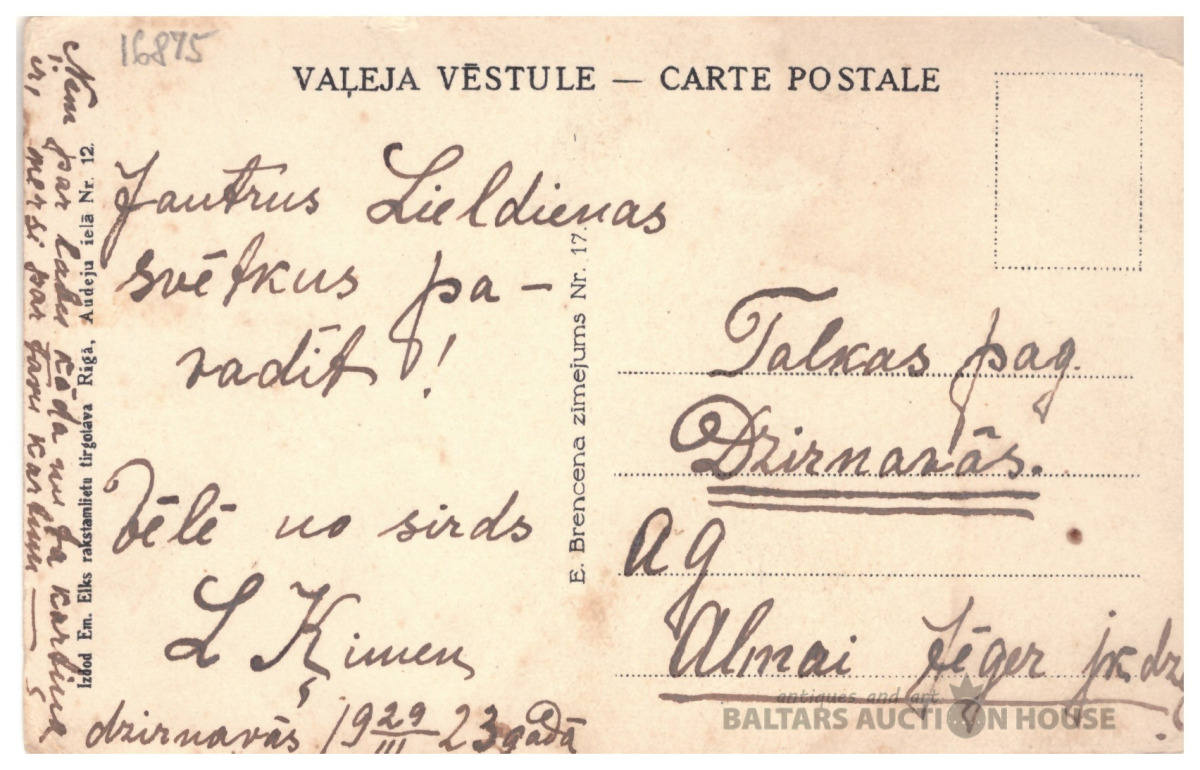 16875
VAĻEJA VĒSTULE — CARTE POSTALE
Jautrus Lieldienas
svētkus pa-
vadīt!
Vēlē no sirds
L Ķimen
dzirnavās 19 29/III 23 gadā
Ņem par labu kāda nu ta kartiņa
ir, mersi par tavu kartiņu —
Izdod Em. Elks rakstamlietu tirgotava Rīgā, Audeju ielā Nr. 12.
E. Brencena zīmejums Nr. 17.
Talkas pag.
Dzirnavās.
Ag
Almai Jēger jk dz
antiques and art
BALTARS AUCTION HOUSE